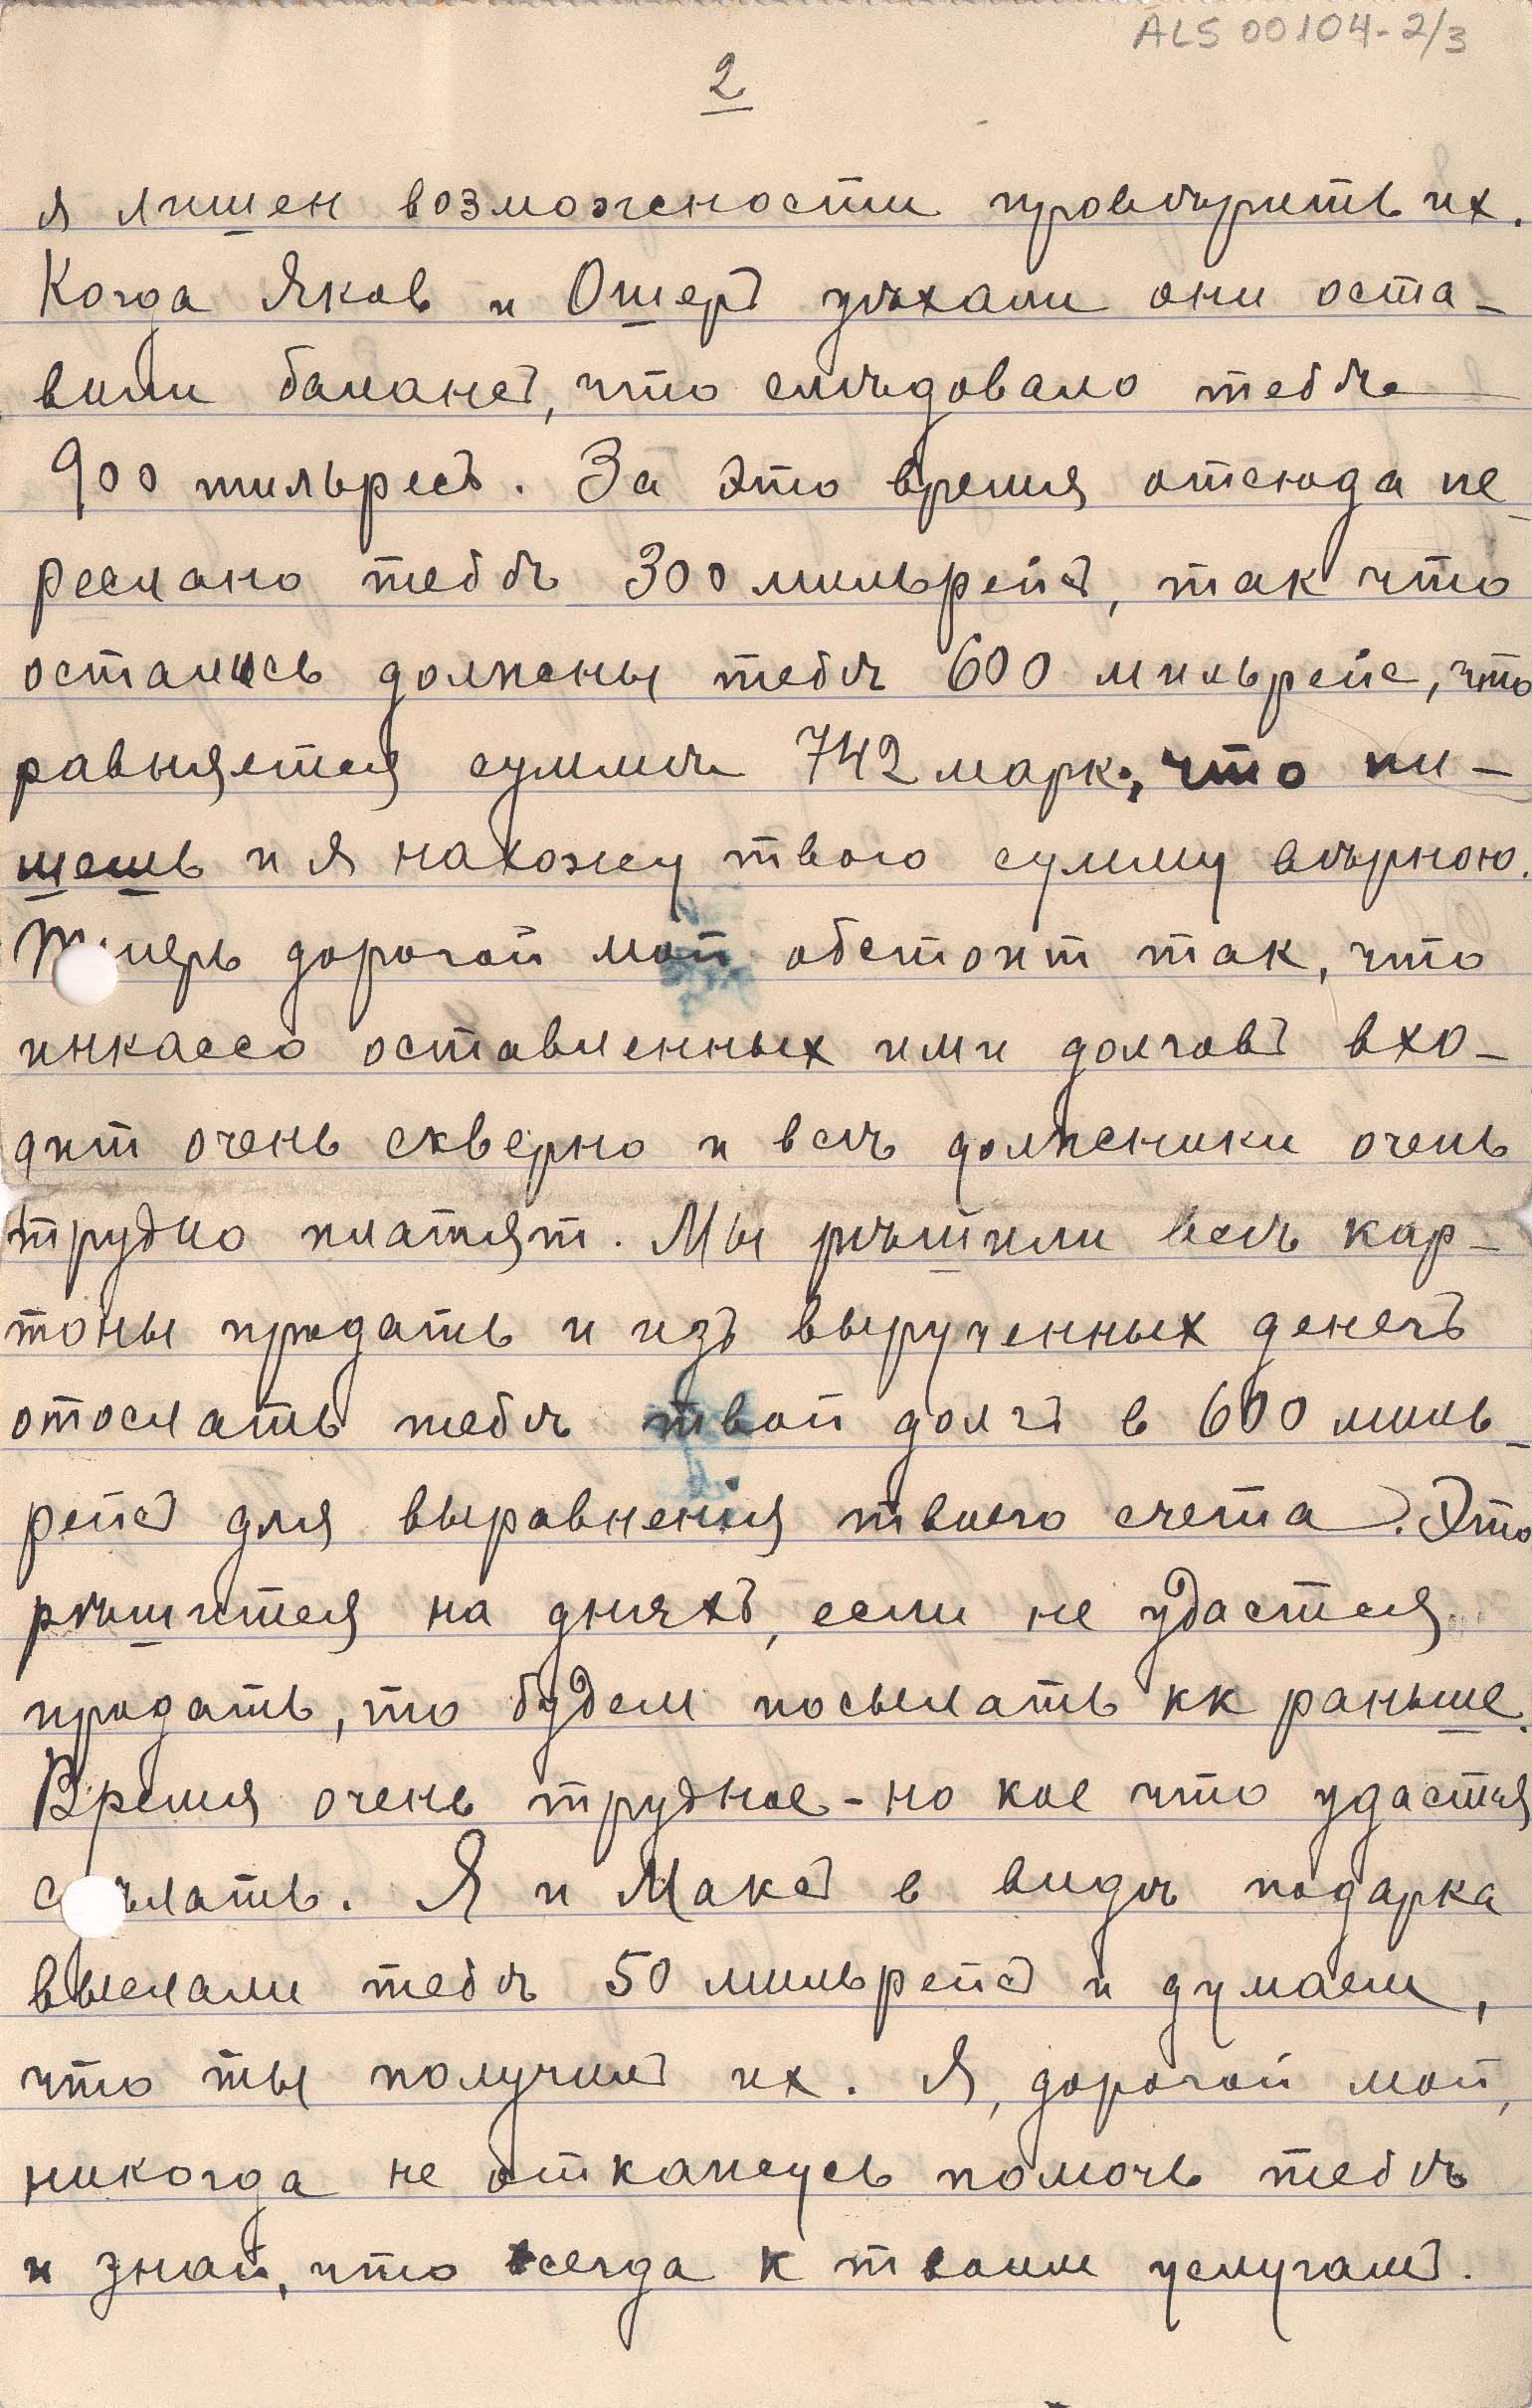 ALS 00104-2/3
2
я лишен возможности провѣрить их.
Когда Яков и Ошеръ уѣхали они оста-
вили балансъ, что слѣдовало тебѣ
900 мильресъ. За это время отсюда пе-
реслано тебѣ 300 мильрейсъ, так что
остались должны тебѣ 600 мильрейс, что
равняется суммѣ 742 марк., что пи-
шешь и я нахожу твою сумму вѣрною.
Теперь дорогой мой обстоит так, что
инкассо оставленных ими долговъ вхо-
дит очень скверно и всѣ должники очень
трудно платят. Мы рѣшили всѣ кар-
тоны продать и изъ вырученных денегъ
отослать тебѣ твой долгъ в 600 миль-
рейсъ для выравненія твоего счета. Это
рѣшится на дняхъ, если не удастся
продать, то будем посылать кк раньше.
Время очень трудное - но кое что удастся
сдѣлать. Я и Максъ в видѣ подарка
выслали тебѣ 50 мильрейсъ и думаем,
что ты получилъ их. Я, дорогой мой,
никогда не откажусь помочь тебѣ
и знай, что всегда к твоим услугамъ.